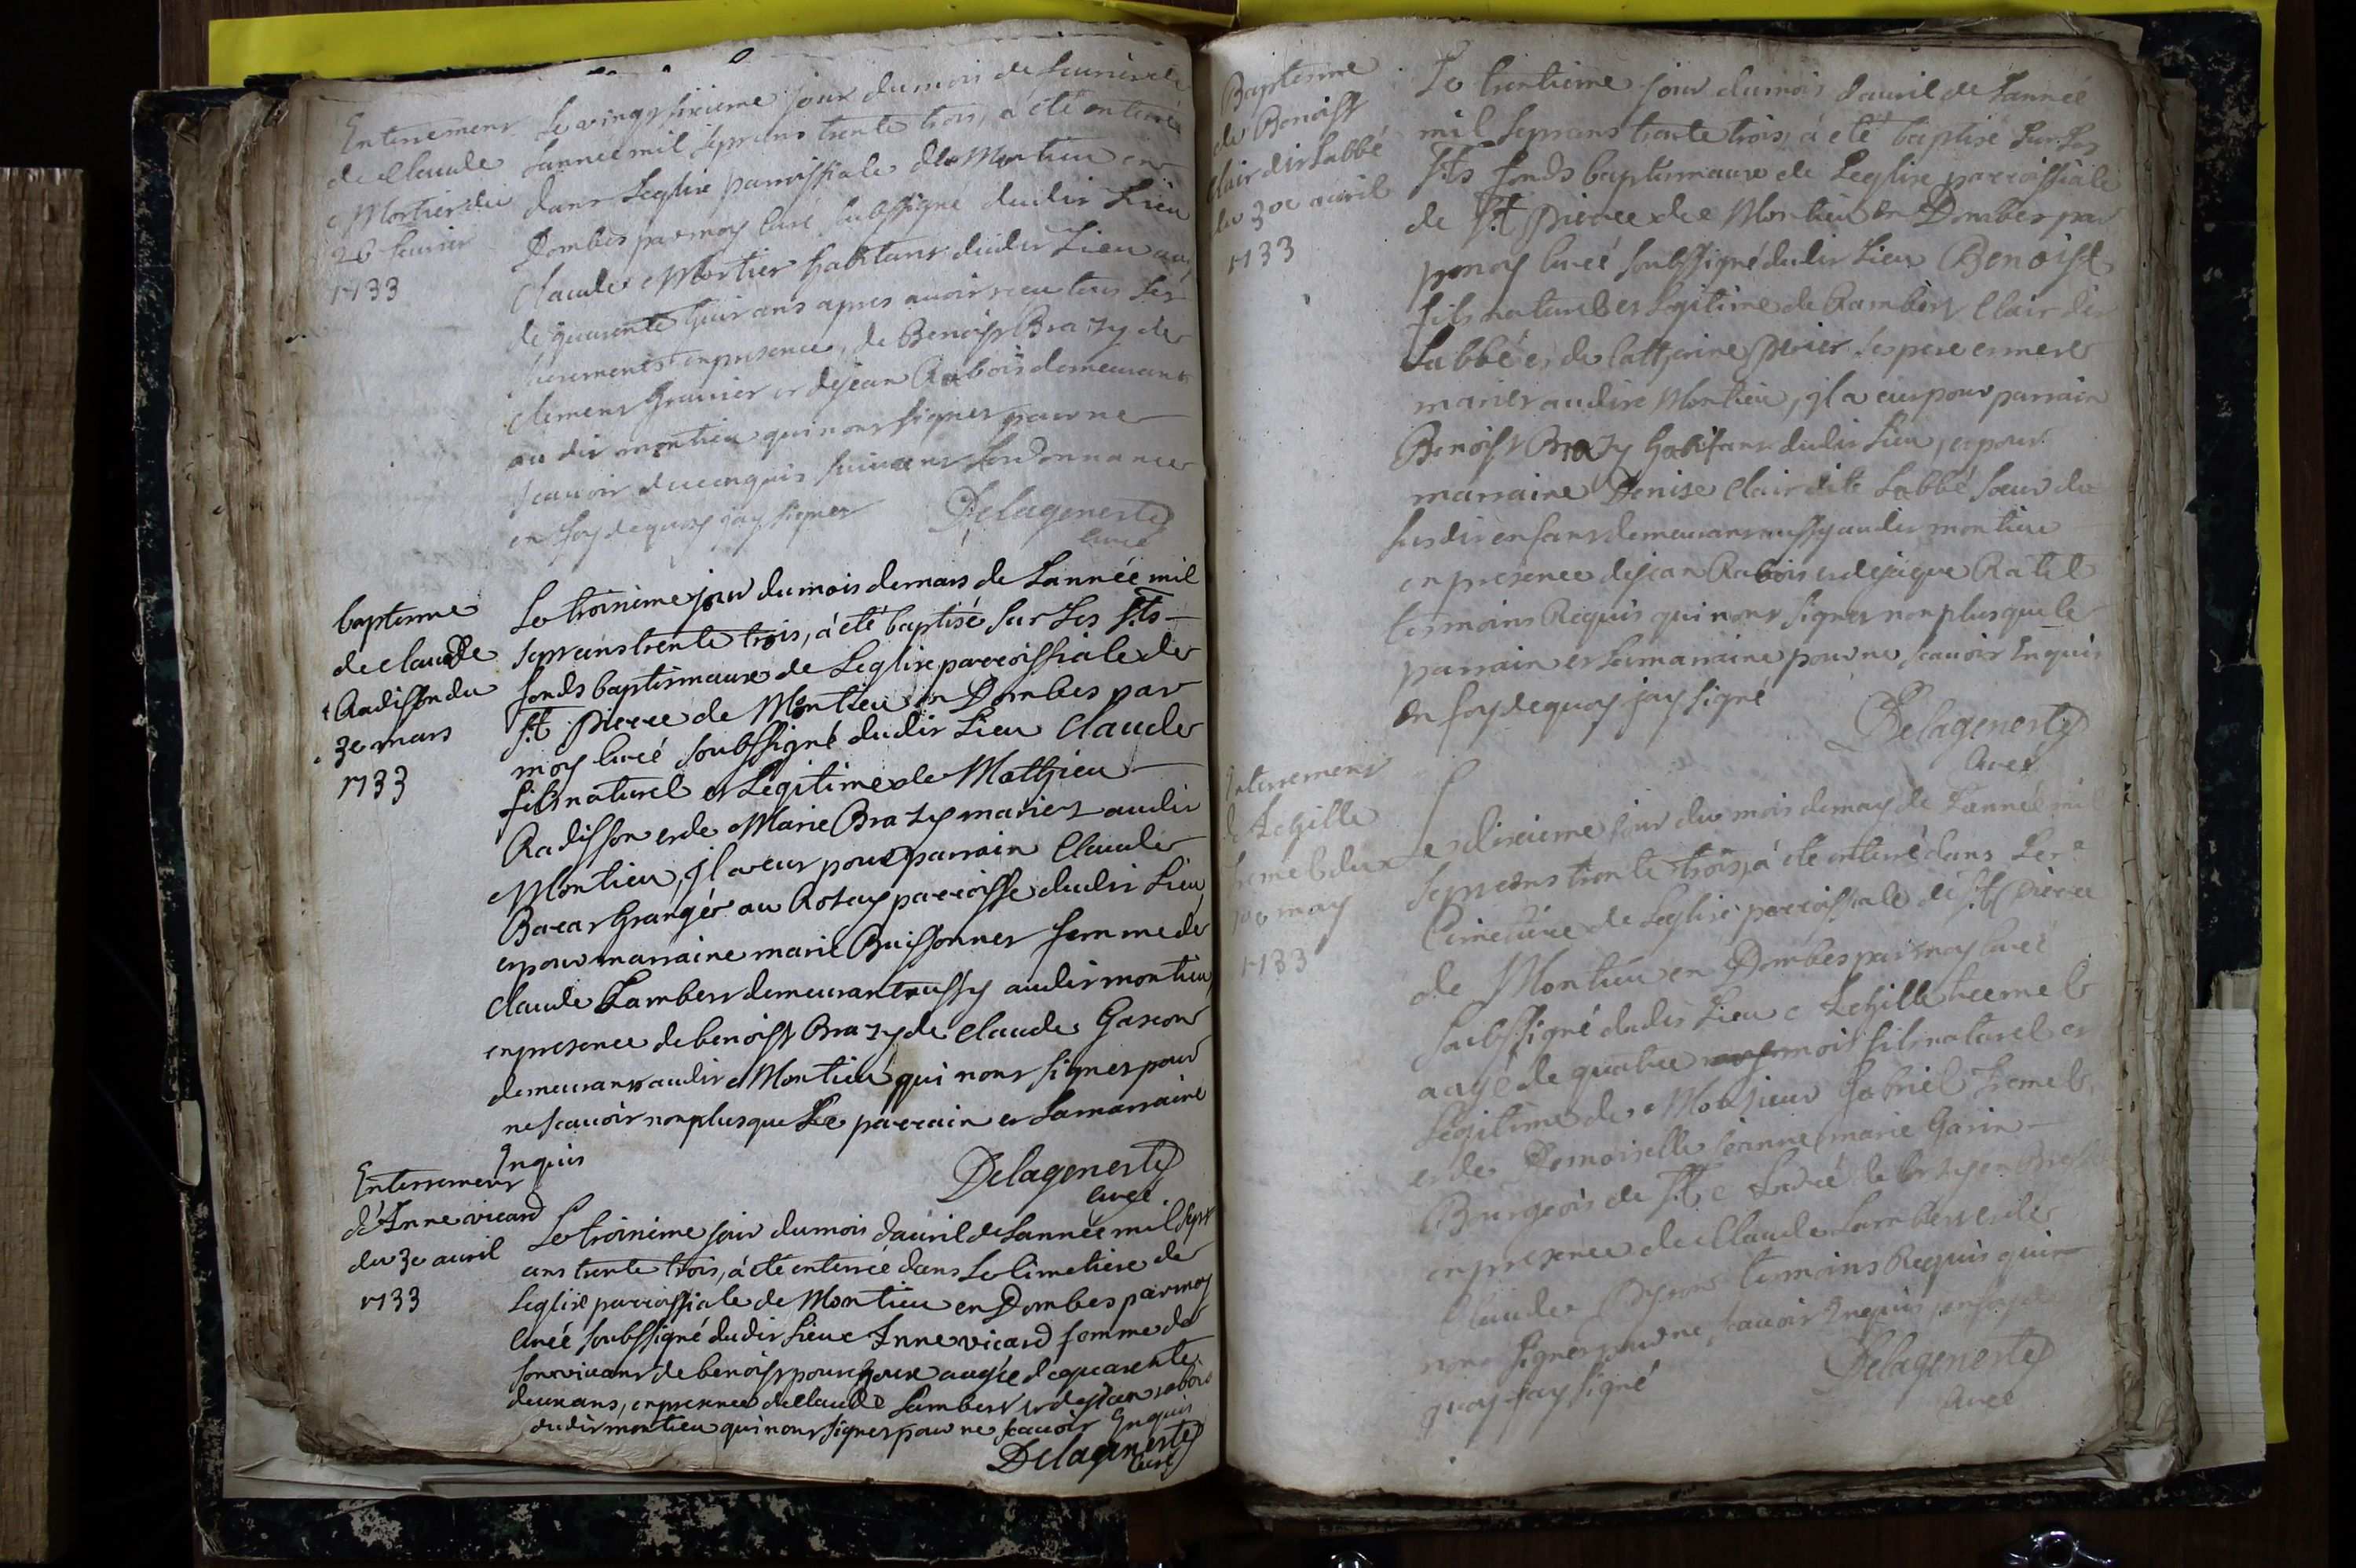 Enterrement
de Claude
Mortier du
26 feurier
1733
Le vingt sixieme jour du mois de feurier de
Lannee mil sept cens trente trois, a été enterré
dans Leglise parroissiale de Montieu en
Dombes par moy Curé soubssigné dudit Lieu
Claude Mortier habitant dudit Lieu
de quarente huit ans apres auoir receu tous les
sacrements en presence, de Benoist Brazy de
Clement Granier et de jean Rabois demeurant
au dit montieu qui n'ont signer pour ne
scauoir de ce enquis suivant Lordonnance
en foy de quoy jay signer
Delagenerte
Curé
baptesme
de claude
Radisson du
3e mars
1733
Le troisieme jour du mois de mars de Lannée mil
sept cens trente trois, a été baptisé sur Les sts
fonds baptismaux de Leglise parroissiale de
st pierre de Montieu en Dombes par
moy Curé soubssigné dudit Lieu Claude
fils naturel et Legitime de Mathieu
Radisson et de Marie Brazy mariez audit
Montieu, jl a eut pour parrain Claude
Barat Granger au Rozay parroisse dudit Lieu
et pour marraine marie Buissonnet femme de
claude Lambert demeurant aussy audit montieu
en presence de benoist Brazy de Claude Gascon
demeurant audit Montieu qui n'ont signer pour
ne scauoir non plus que Le parrain et La marraine
Enquis
Delagenerte
Curé
Enterrement
d'Anne vicard
du 3e auril
1733
Le troisieme jour du mois dauril de Lannée mil sept
cens trente trois, a été enterrée dans Le Cimetiere de
Leglise parroissiale de Montieu en Dombes par moy
Curé soubssigné dudit Lieu Anne vicard femme de
son viuant de benoist aagée de quarente
deux ans, en presence de Claude Lambert et de jean rabois
dudit montieu qui n'ont signer pour ne scauoir Enquis
Delagenerte
Curé
Baptesme
de Benoist
Clair dit Labbé
du 30e auril
1733
Le trentieme jour du mois dauril de Lannée
mil sept cens trente trois, a été baptisé sur Les
sts fonds baptismaux de Leglise parroissiale
de st pierre de Montieu en Dombes par
moy Curé soubssigné dudit Lieu Benoist
fils naturel et Legitime de Rambert Clair dit
Labbé et de Catherine Perier ses pere et mere
mariez audit Montieu, jl a eut pour parrain
Benoist Brazy habitant dudit Lieu, et pour
marraine Denise Clair dite Labbé soeur du
susdit enfant demeurant aussy audit montieu
en presence de jean Rabois et de jaque Ratel
temoins Requis qui n'ont signer non plus que le
parrain et La marraine pour ne scauoir Enquis
En foy de quoy jay signé
Delagenerte
Curé
Enterrement
d'Achille
hemel du
10e may
1733
Le dixieme jour du mois de may de Lannée mil
sept cens trente trois, a été enterré dans Le
Cimetiere de Leglise parroissiale de st Pierre
de Montieu en Dombes par moy Curé
soubssigné dudit Lieu Achille hemel
aagé de quatre mois fils naturel et
Legitime de Monsieur Gabriel hemel
et de Demoiselle jeanne marie Garin
Bourgeois de st André le
en presence de Claude Lambert et de
Claude temoins Requis qui
n'ont signer pour ne scauoir Enquis, en foy de
quoy jay signé
Delagenerte
Curé